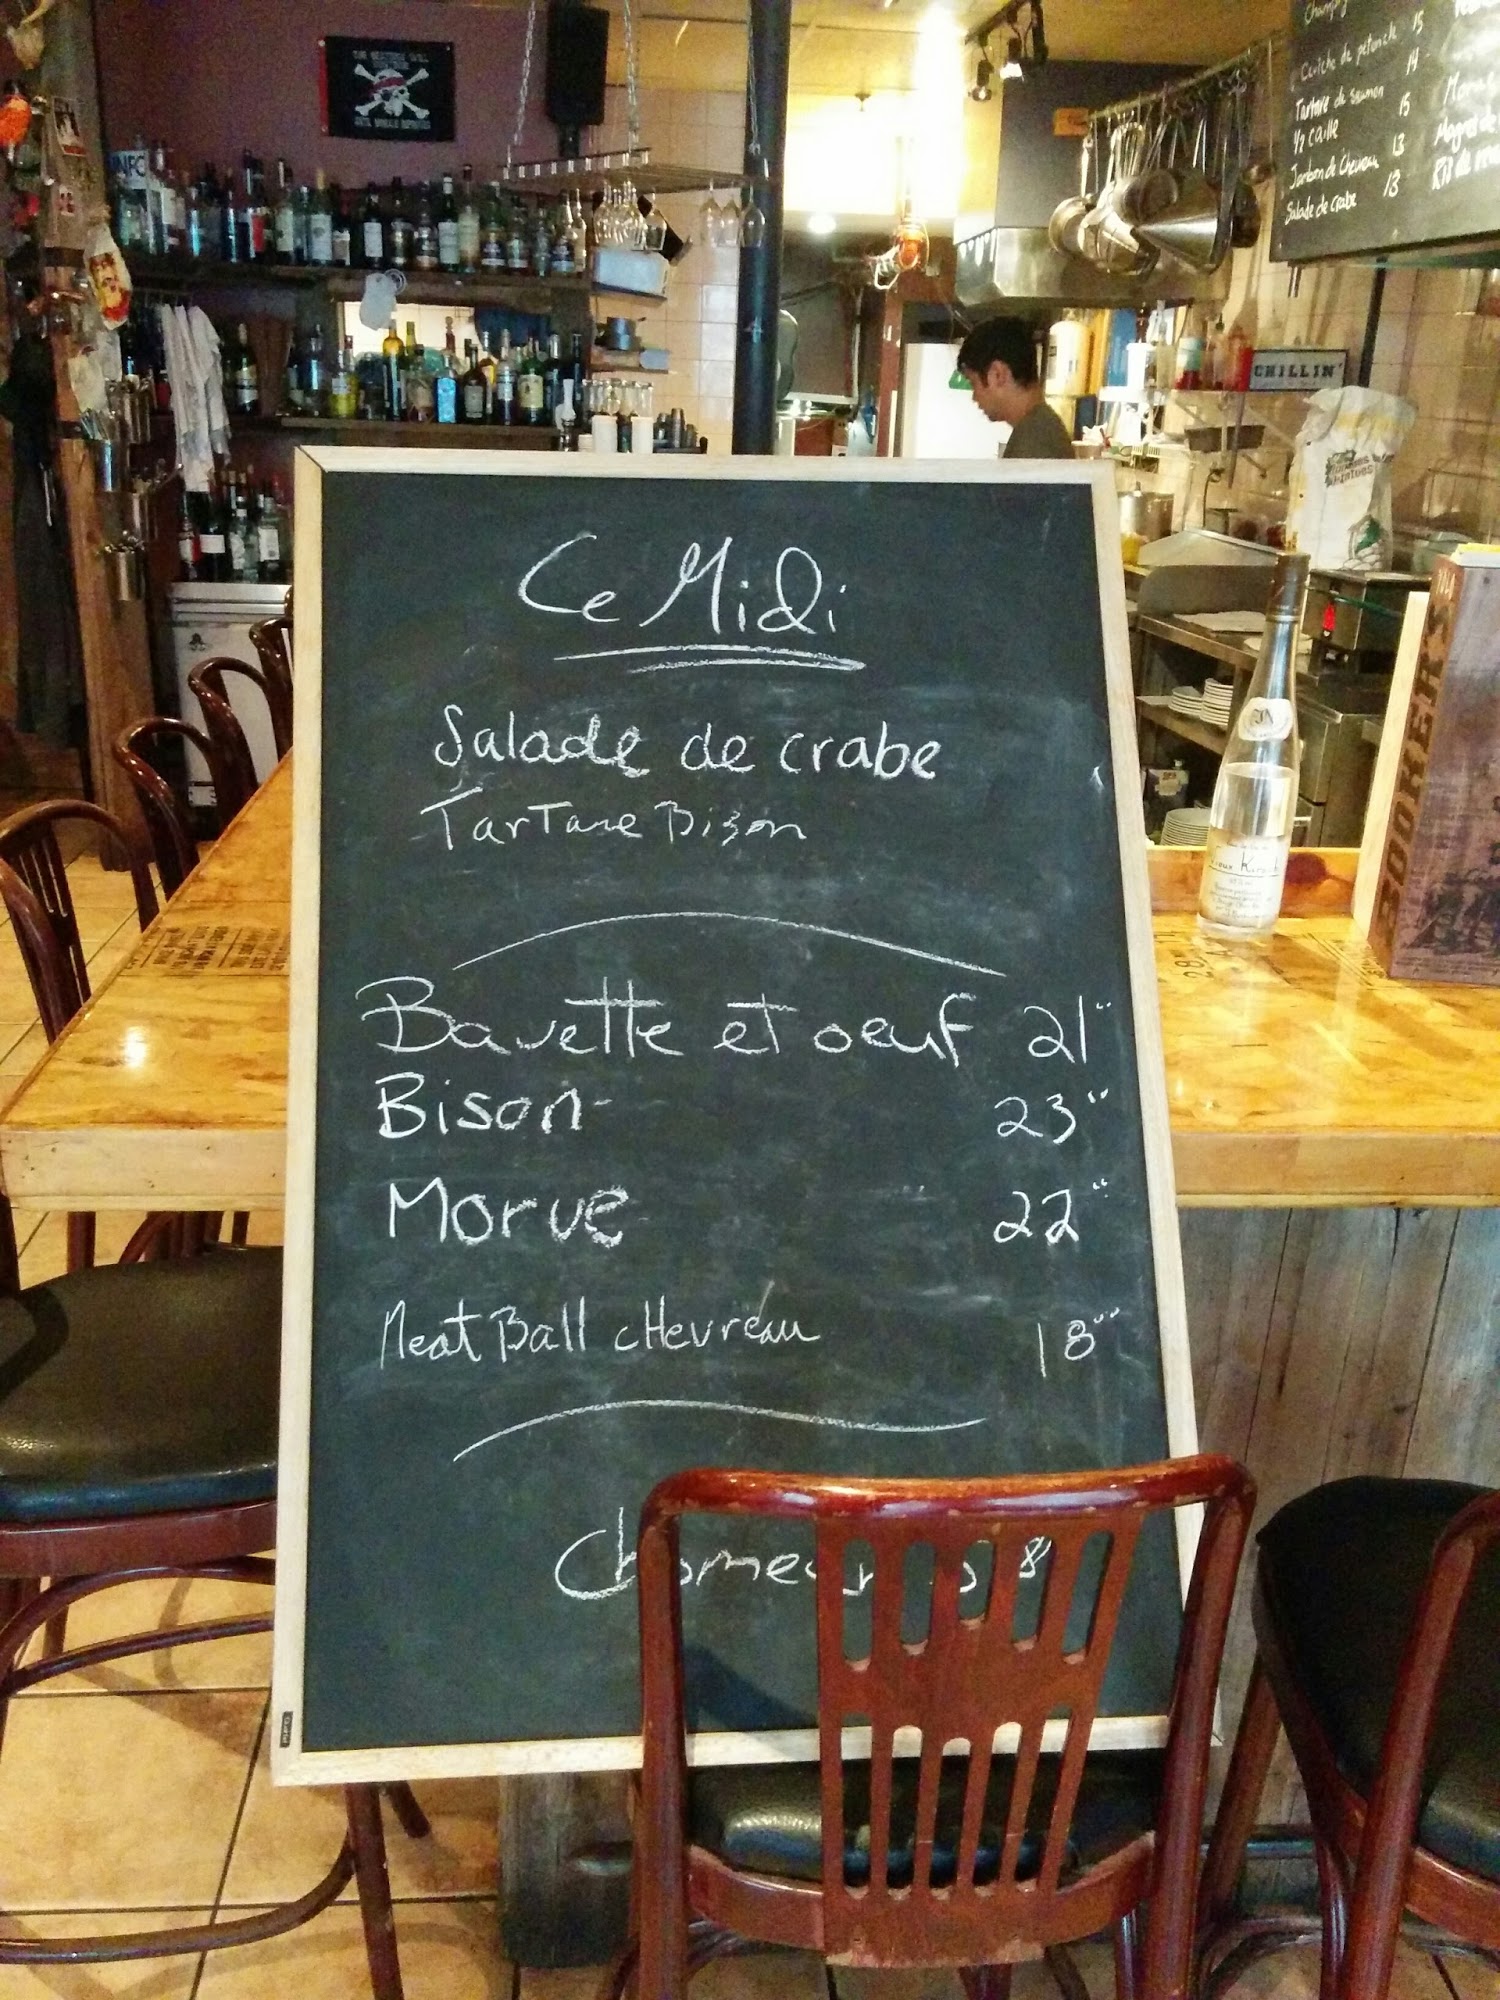 Champ
Ceviche de pétoncle 15
Tartare de saumon 14
1/2 caille 15
Jambon de Chevreau 13
Salade de crabe 13
Magret de
Ris de
CHILLIN'
Ce Midi
Salade de crabe
Tartare Bison
Bavette et oeuf 21""
Bison 23""
Morue 22""
Meat Ball cHevreau 18""
8
BOOKER'S